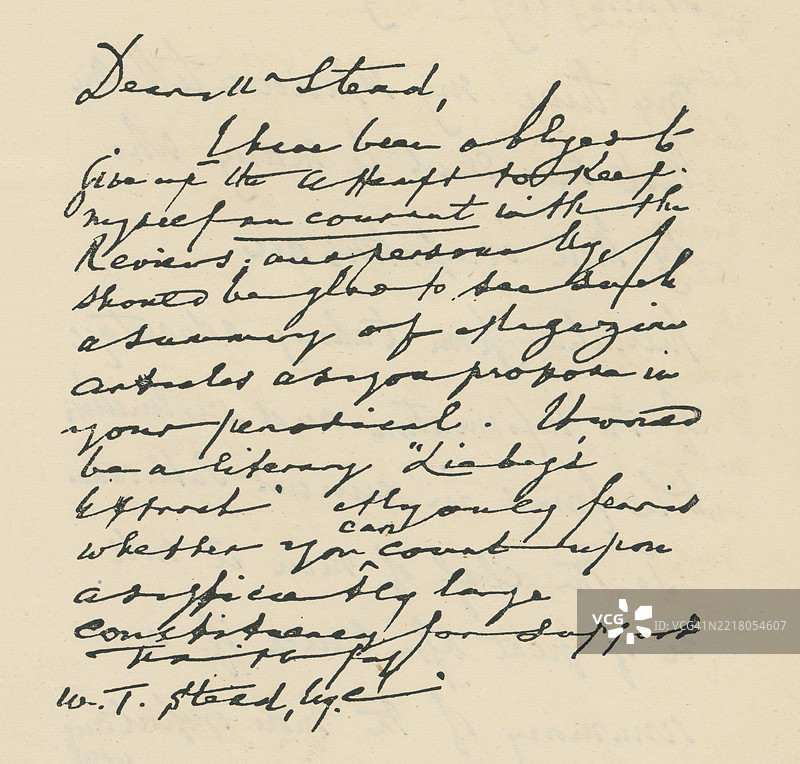 Dear Mr Stead,
I have been obliged to
give up the attempt to keep
myself au courant with the
Reviews; and personally, I
should be glad to see such
a summary of Magazine
articles as you propose in
your periodical. It would
be a literary "Liebig's
Extract" My only fear is
whether you can count upon
a sufficiently large
constituency for support
Faithfully
W. T. Stead, Esq.
VCG ID: VCG41N2218054607